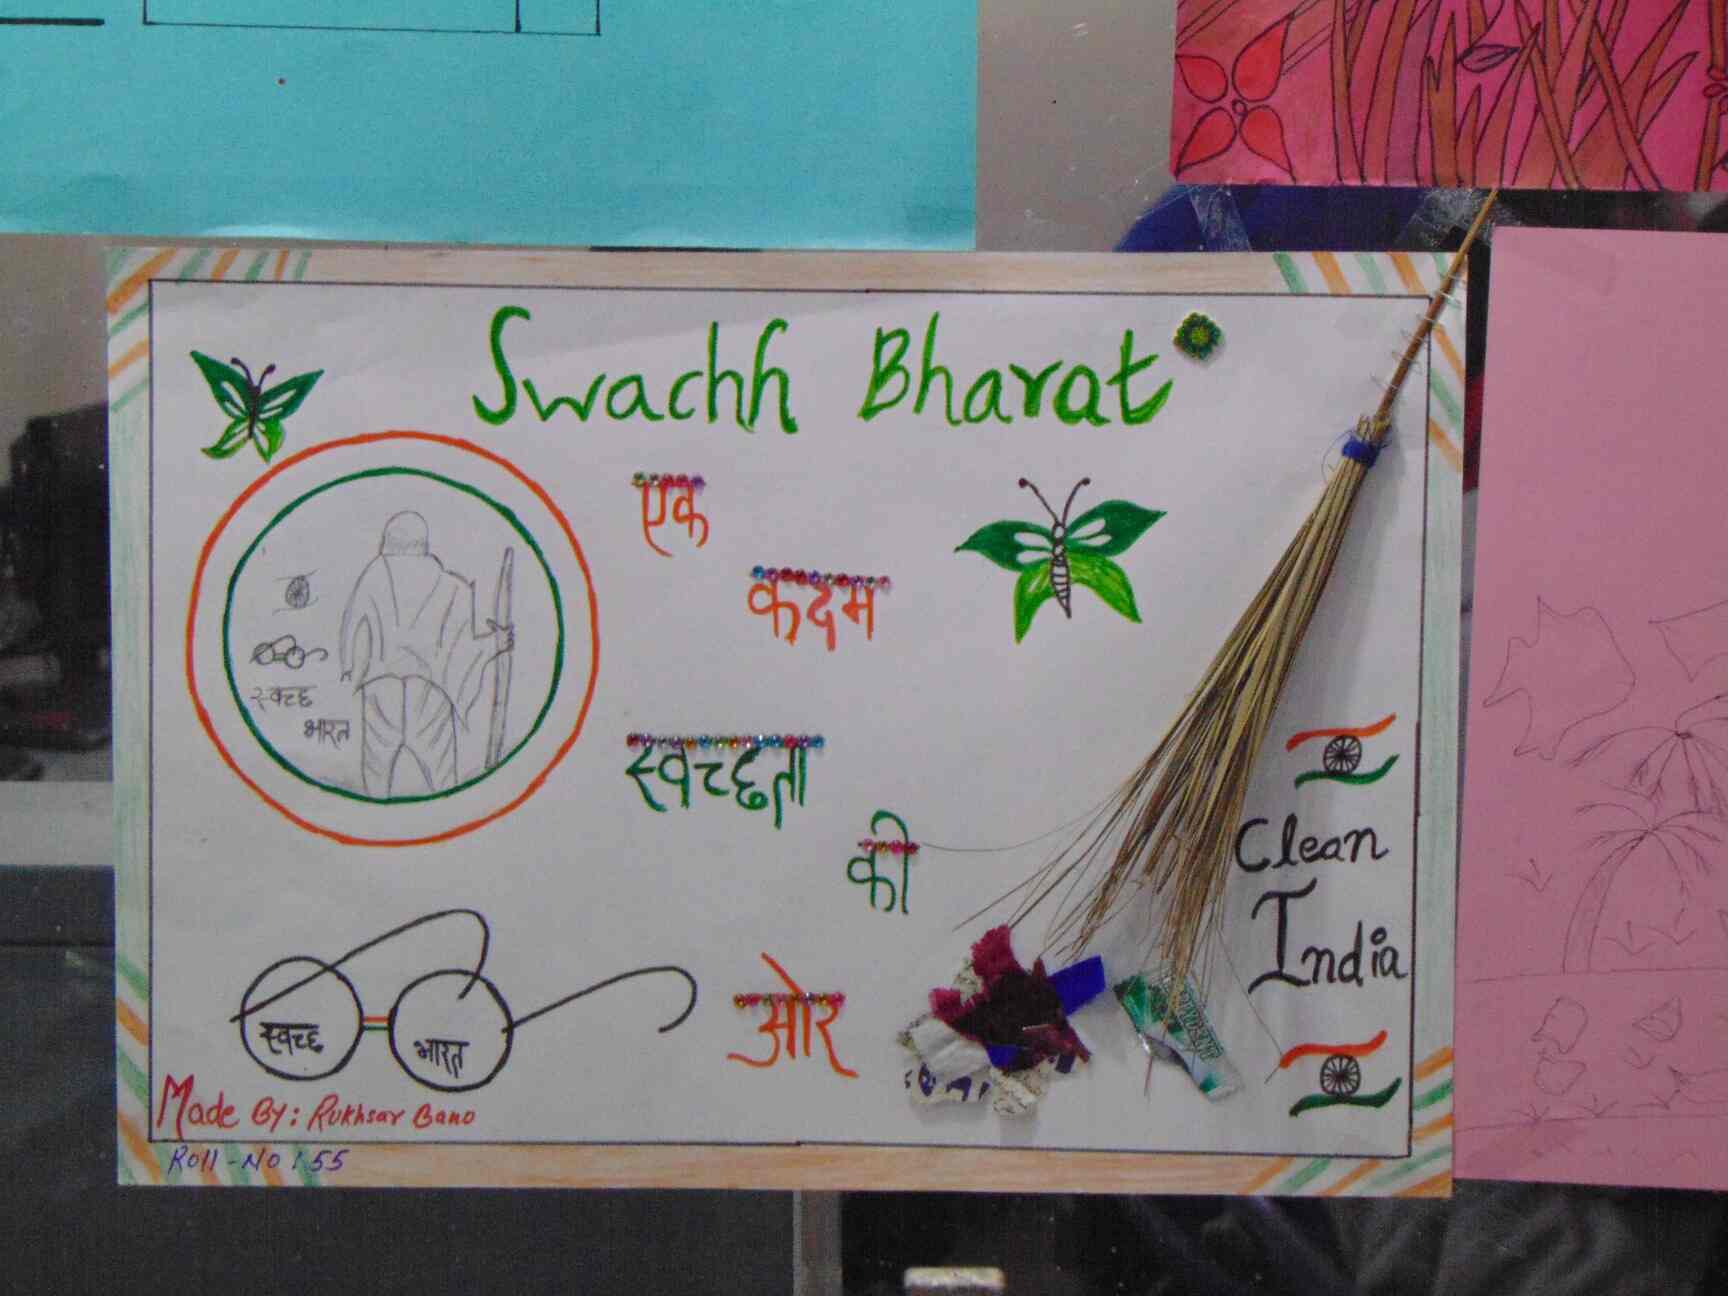 Swachh Bharat
एक
कदम
स्वच्छ
भारत
स्वच्छता
की
ओर
Clean
India
स्वच्छ भारत
Made By: Rukhsar Bano
Roll-No: 55